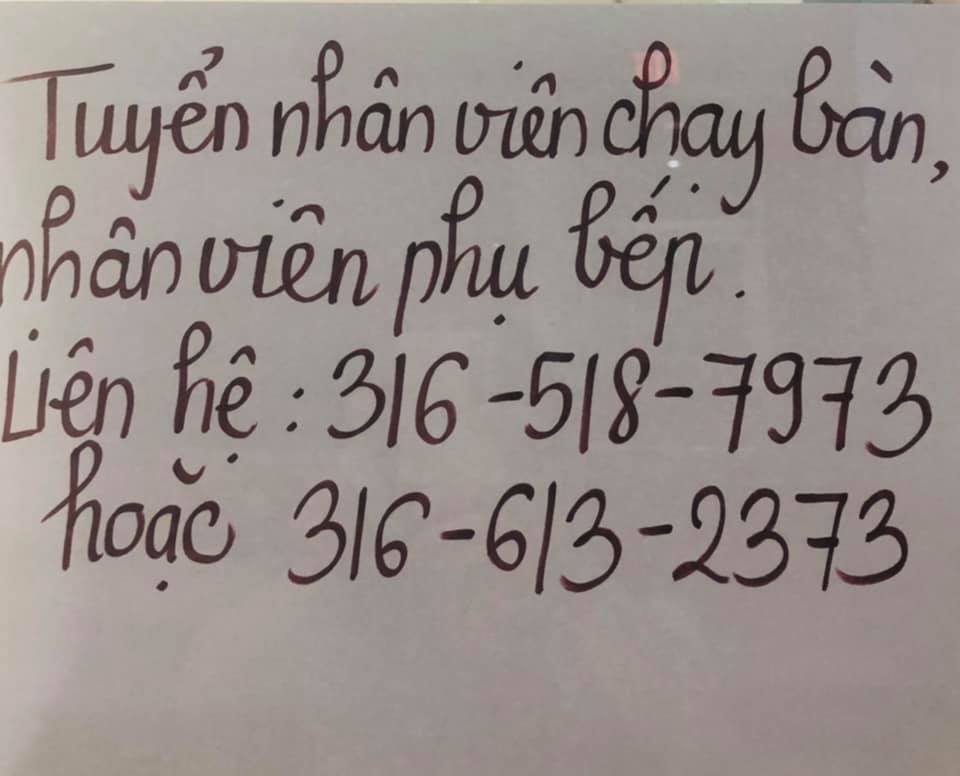 Tuyển nhân viên chạy bàn,
nhân viên phụ bếp.
Liên hệ: 316-518-7973
hoặc 316-613-2373